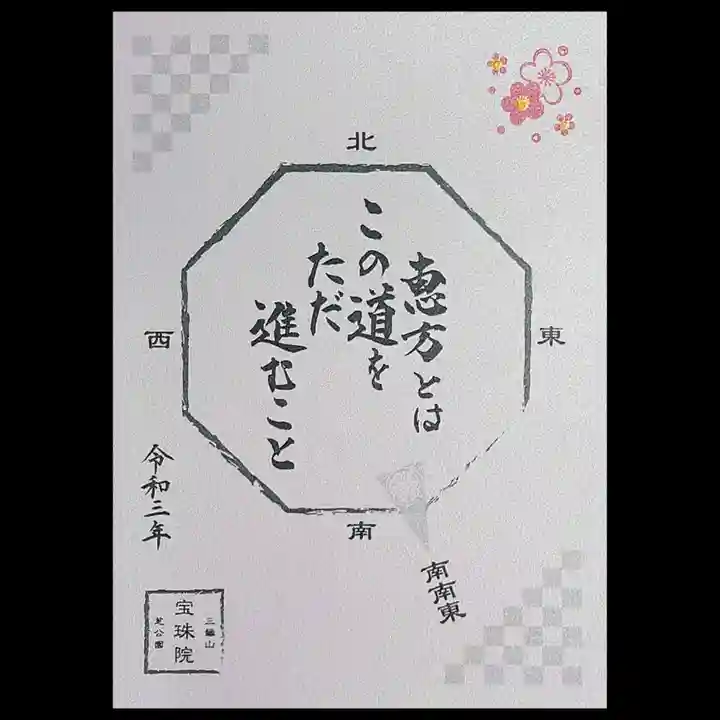 北
東
西
南
南南東
恵方とは
この道を
ただ
進むこと
令和三年
三縁山
宝珠院
芝公園